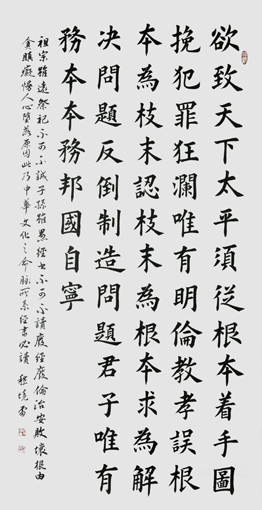 欲致天下太平須從根本着手圖
挽犯罪狂瀾唯有明倫教孝誤根
本為枝末認枝末為根本求為解
决問題反倒制造問題君子唯有
務本本務邦國自寧
祖宗雖遠祭祀不可不誠子孫雖愚經書不可不讀廢經廢倫治安敗壞根由
貪瞋癡慢人心墮落原因此乃中華文化之命脉所系經書必讀